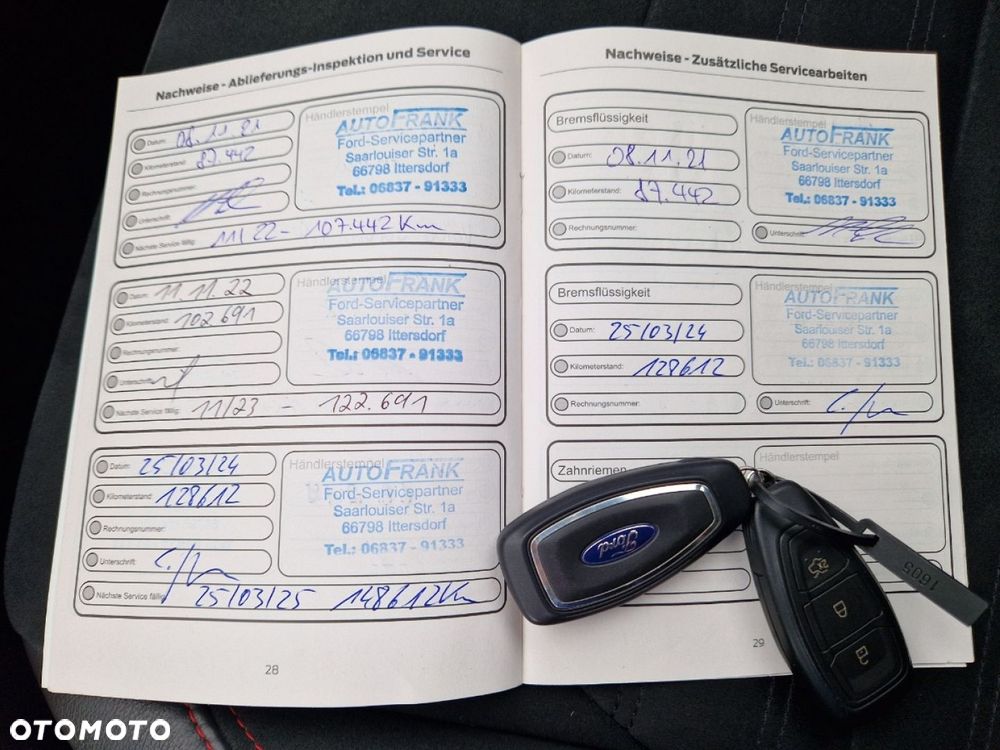 Nachweise - Ablieferungs-Inspektion und Service
Datum: 08.11.21
Kilometerstand: 87.442
Rechnungsnummer:
Unterschrift:
Nächste Service fällig: 11/22 - 107.442 Km
Händlerstempel
AUTO FRANK
Ford-Servicepartner
Saarlouiser Str. 1a
66798 Ittersdorf
Tel.: 06837 - 91333
Datum: 11.11.22
Kilometerstand: 102.691
Rechnungsnummer:
Unterschrift:
Nächste Service fällig: 11/23 - 122.691
Händlerstempel
AUTO FRANK
Ford-Servicepartner
Saarlouiser Str. 1a
66798 Ittersdorf
Tel.: 06837 - 91333
Datum: 25/03/24
Kilometerstand: 128612
Rechnungsnummer:
Unterschrift:
Nächste Service fällig: 25/03/25 148612 Km
Händlerstempel
AUTO FRANK
Ford-Servicepartner
Saarlouiser Str. 1a
66798 Ittersdorf
Tel.: 06837 - 91333
28
Nachweise - Zusätzliche Servicearbeiten
Bremsflüssigkeit
Datum: 08.11.21
Kilometerstand: 87.442
Rechnungsnummer:
Händlerstempel
AUTO FRANK
Ford-Servicepartner
Saarlouiser Str. 1a
66798 Ittersdorf
Tel.: 06837 - 91333
Unterschrift:
Bremsflüssigkeit
Datum: 25/03/24
Kilometerstand: 128612
Rechnungsnummer:
Händlerstempel
AUTO FRANK
Ford-Servicepartner
Saarlouiser Str. 1a
66798 Ittersdorf
Tel.: 06837 - 91333
Unterschrift:
Zahnriemen
Händlerstempel
Ford
1605
29
OTOMOTO